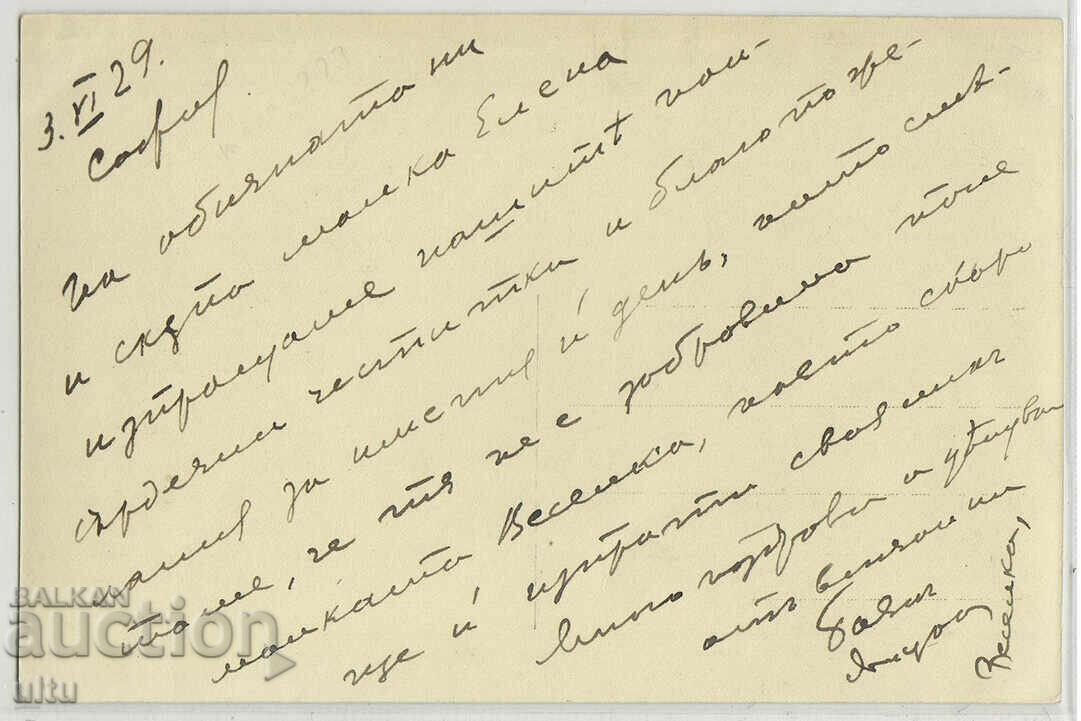 3. VI 29.
София
На обичната ни
и скѫпа малка Елена
изпращаме нашитѣ най-
сърдечни честитки и благопоже-
лания за именния ѝ день, като смѣ-
таме, че тя не е забравила поне
малката Веселка, която скоро
ще ѝ изпрати своя ликъ
Много поздрави и цѣлувки
отъ всички ни
Веселка
BALKAN
auction
ultu